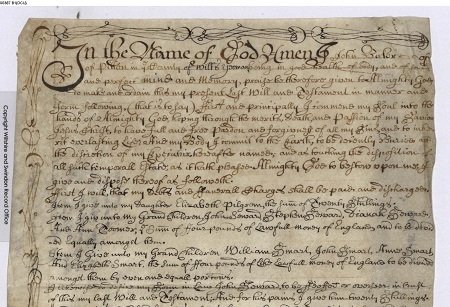 In the Name of God Amen I John Baker
of in County of Wilts being in good health of body and of sound
and perfect mind and Memory, praise be therefore given to Almighty God,
do make and ordain this my present Last Will and Testament in manner and
form following, (that is to say) First and principally I commend my Soul into the
hands of Almighty God, hoping through the merits, Death and Passion of my Saviour
Jesus Christ, to have full and free Pardon and forgiveness of all my Sins, and to inhe-
rit everlasting Life; and my Body I commit to the Earth, to be decently buried at
the discretion of my Executor hereafter named; and as touching the disposition of
all such temporall Estate as it hath pleased Almighty God to bestow upon me, I
give and dispose thereof as followeth:
First I will, that my Debts and funerall Charges shall be paid and discharged,
Item I give unto my daughter Elizabeth Pilgrom, the Sum of Twenty Shillings,
Item I give unto my Grandchildren, John Stephen
And Ann the Sum of four pounds of Lawfull money of England to be divid-
ed Equally amongst them.
Item I Give unto my Grandchildren William Smart, John Smart, Anne Smart,
And Elizabeth Smart, the Sum of four pounds of like lawfull money of England to be divided
amongst them by even and equall portions.
my Son in Law John to be or overseer in trust
of this my last Will and Testament, And for his pains I give him twenty Shillings,
Copyright Wiltshire and Swindon Record Office